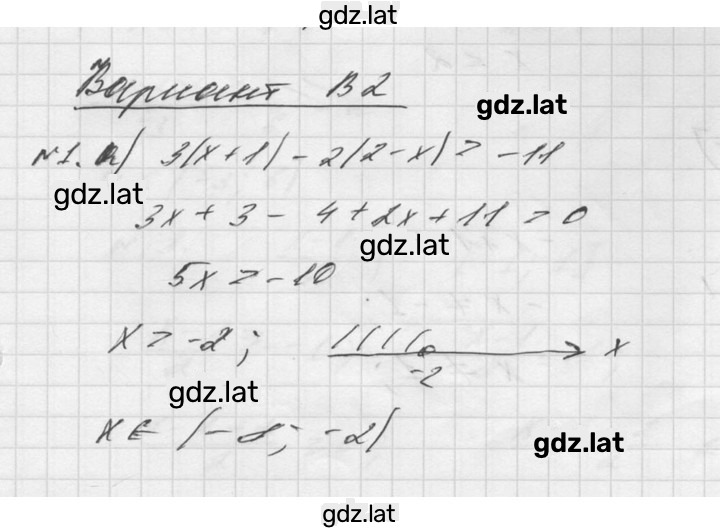 gdz.lat
Вариант В2
gdz.lat
№1. а) 3(x+1) - 2(2-x) > -11
gdz.lat
3x + 3 - 4 + 2x + 11 > 0
gdz.lat
5x > -10
x > -2; x
-2
gdz.lat
x ∈ (-∞; -2)
gdz.lat
gdz.lat